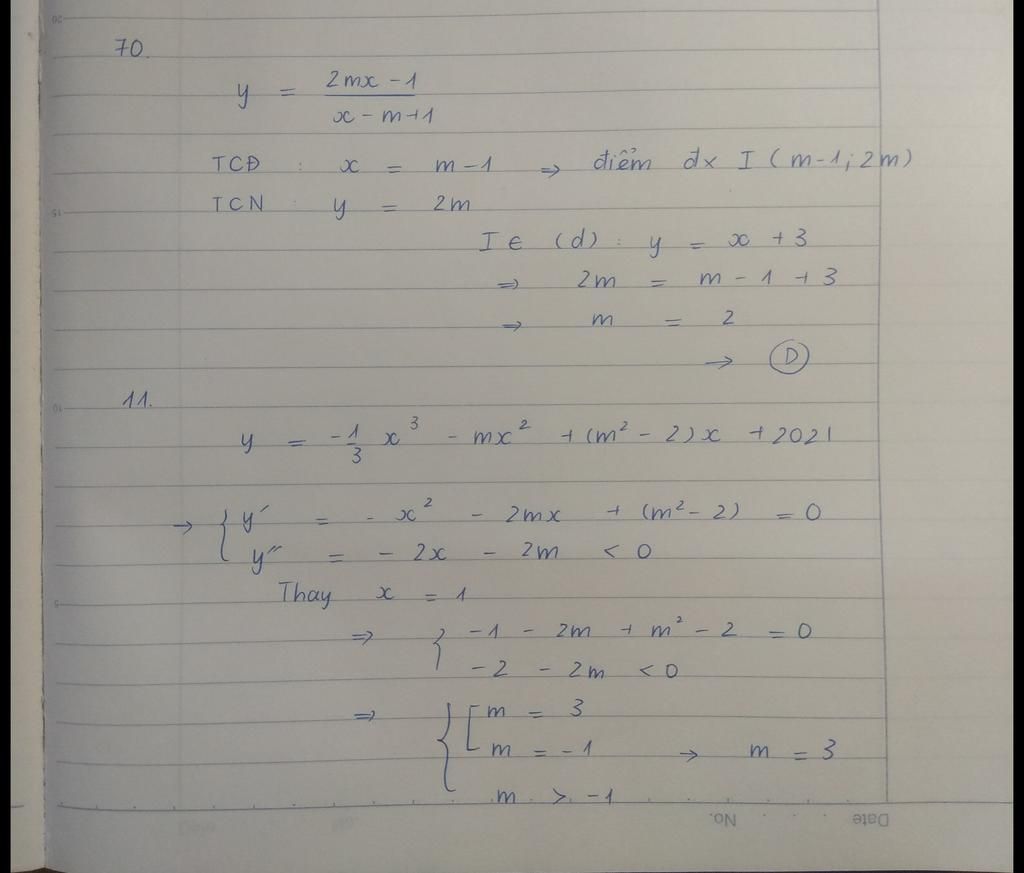 70.
y = \frac{2mx - 1}{x - m + 1}
TCĐ : x = m - 1 ⇒ điểm đx I (m-1; 2m)
TCN : y = 2m
I ∈ (d) : y = x + 3
⇒ 2m = m - 1 + 3
⇒ m = 2
→ D
11.
y = -\frac{1}{3} x³ - mx² + (m² - 2)x + 2021
→ { y' = - x² - 2mx + (m² - 2) = 0
y'' = - 2x - 2m < 0
Thay x = 1
⇒ { -1 - 2m + m² - 2 = 0
-2 - 2m < 0
⇒ { [ m = 3
m = -1 → m = 3
m > -1
Date No.
20
15
10
5